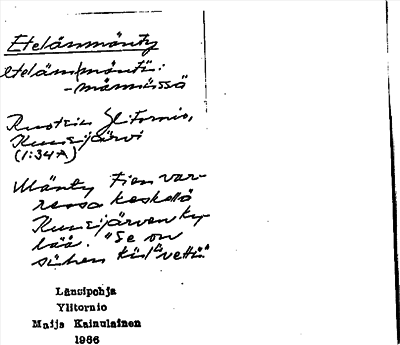 Etelänmänty
etelämmänti:
-männüssä
Ruotsin Ylitornio,
Kuusijärvi
(1:34A)
Mänty tien var-
ressa keskellä
Kuusijärven ky-
lää. "Se on
siihen
Länsipohja
Ylitornio
Maija Kainulainen
1986